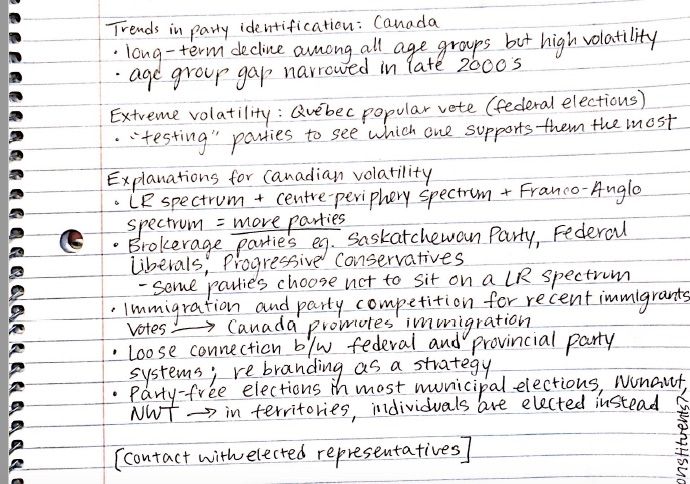 Trends in party identification: Canada
· long-term decline among all age groups but high volatility
· age group gap narrowed in late 2000's
Extreme volatility: Québec popular vote (federal elections)
· "testing" parties to see which one supports them the most
Explanations for Canadian volatility
· LR spectrum + centre-periphery spectrum + Franco-Anglo
spectrum = more parties
· Brokerage parties eg. Saskatchewan Party, Federal
Liberals, Progressive Conservatives
- Some parties choose not to sit on a LR spectrum
· Immigration and party competition for recent immigrants
votes → Canada promotes immigration
· Loose connection b/w federal and provincial party
systems; rebranding as a strategy
· Party-free elections in most municipal elections, Nunavut,
NWT → in territories, individuals are elected instead
[contact with elected representatives]